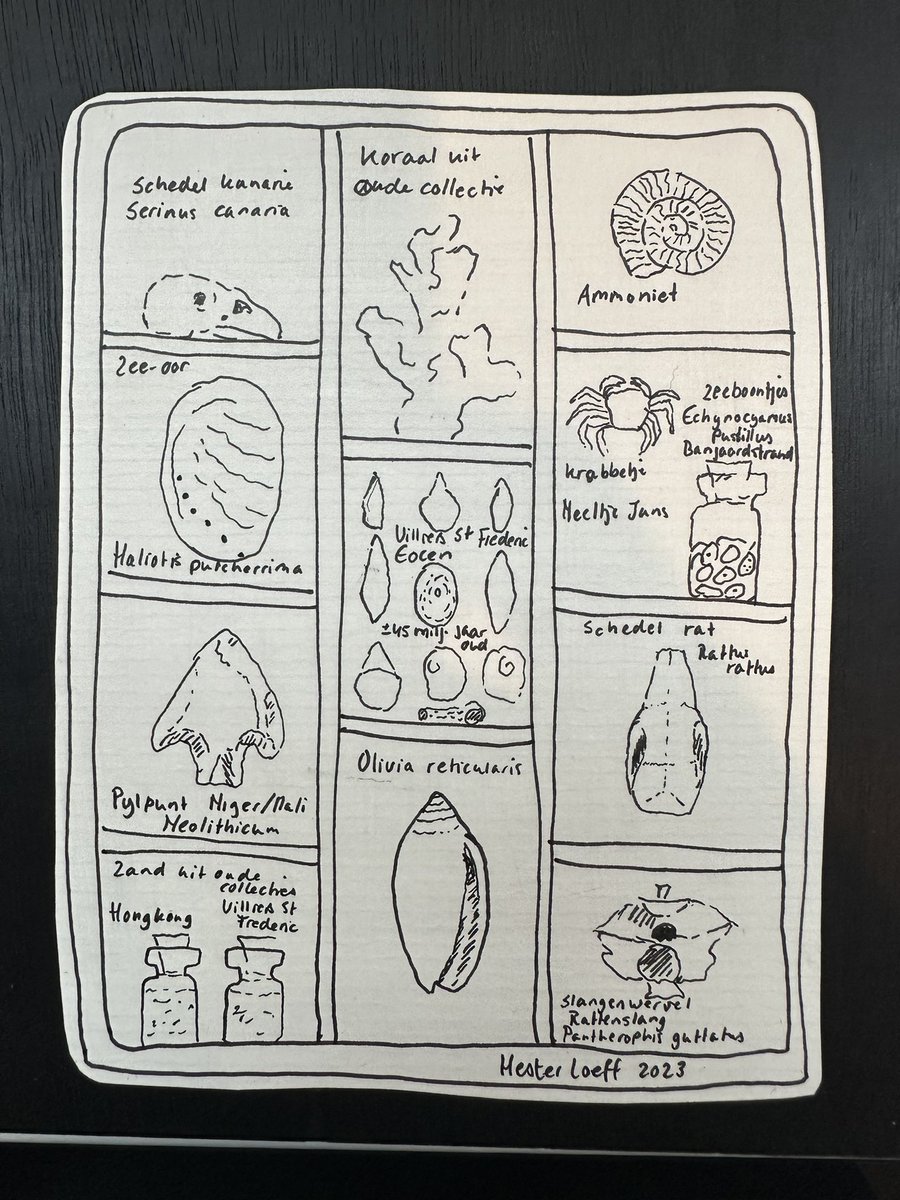 Schedel kanarie
Serinus canaria
Zee-oor
Haliotis pulcherrima
Pylpunt Niger/Mali
Neolithicum
Zand uit oude
collecties
Hongkong
Villiers St
Frederic
Koraal uit
Oude collectie
Villiers St Frederic
Eoceen
±45 milj. jaar
oud
Olivia reticularis
Ammoniet
Zeeboontjes
Echynocyamus
Pusillus
Banjaardstrand
Krabbetje
Neeltje Jans
Schedel rat
Rattus
rattus
Slangenwervel
Rattenslang
Pantherophis guttatus
Hester Loeff 2023